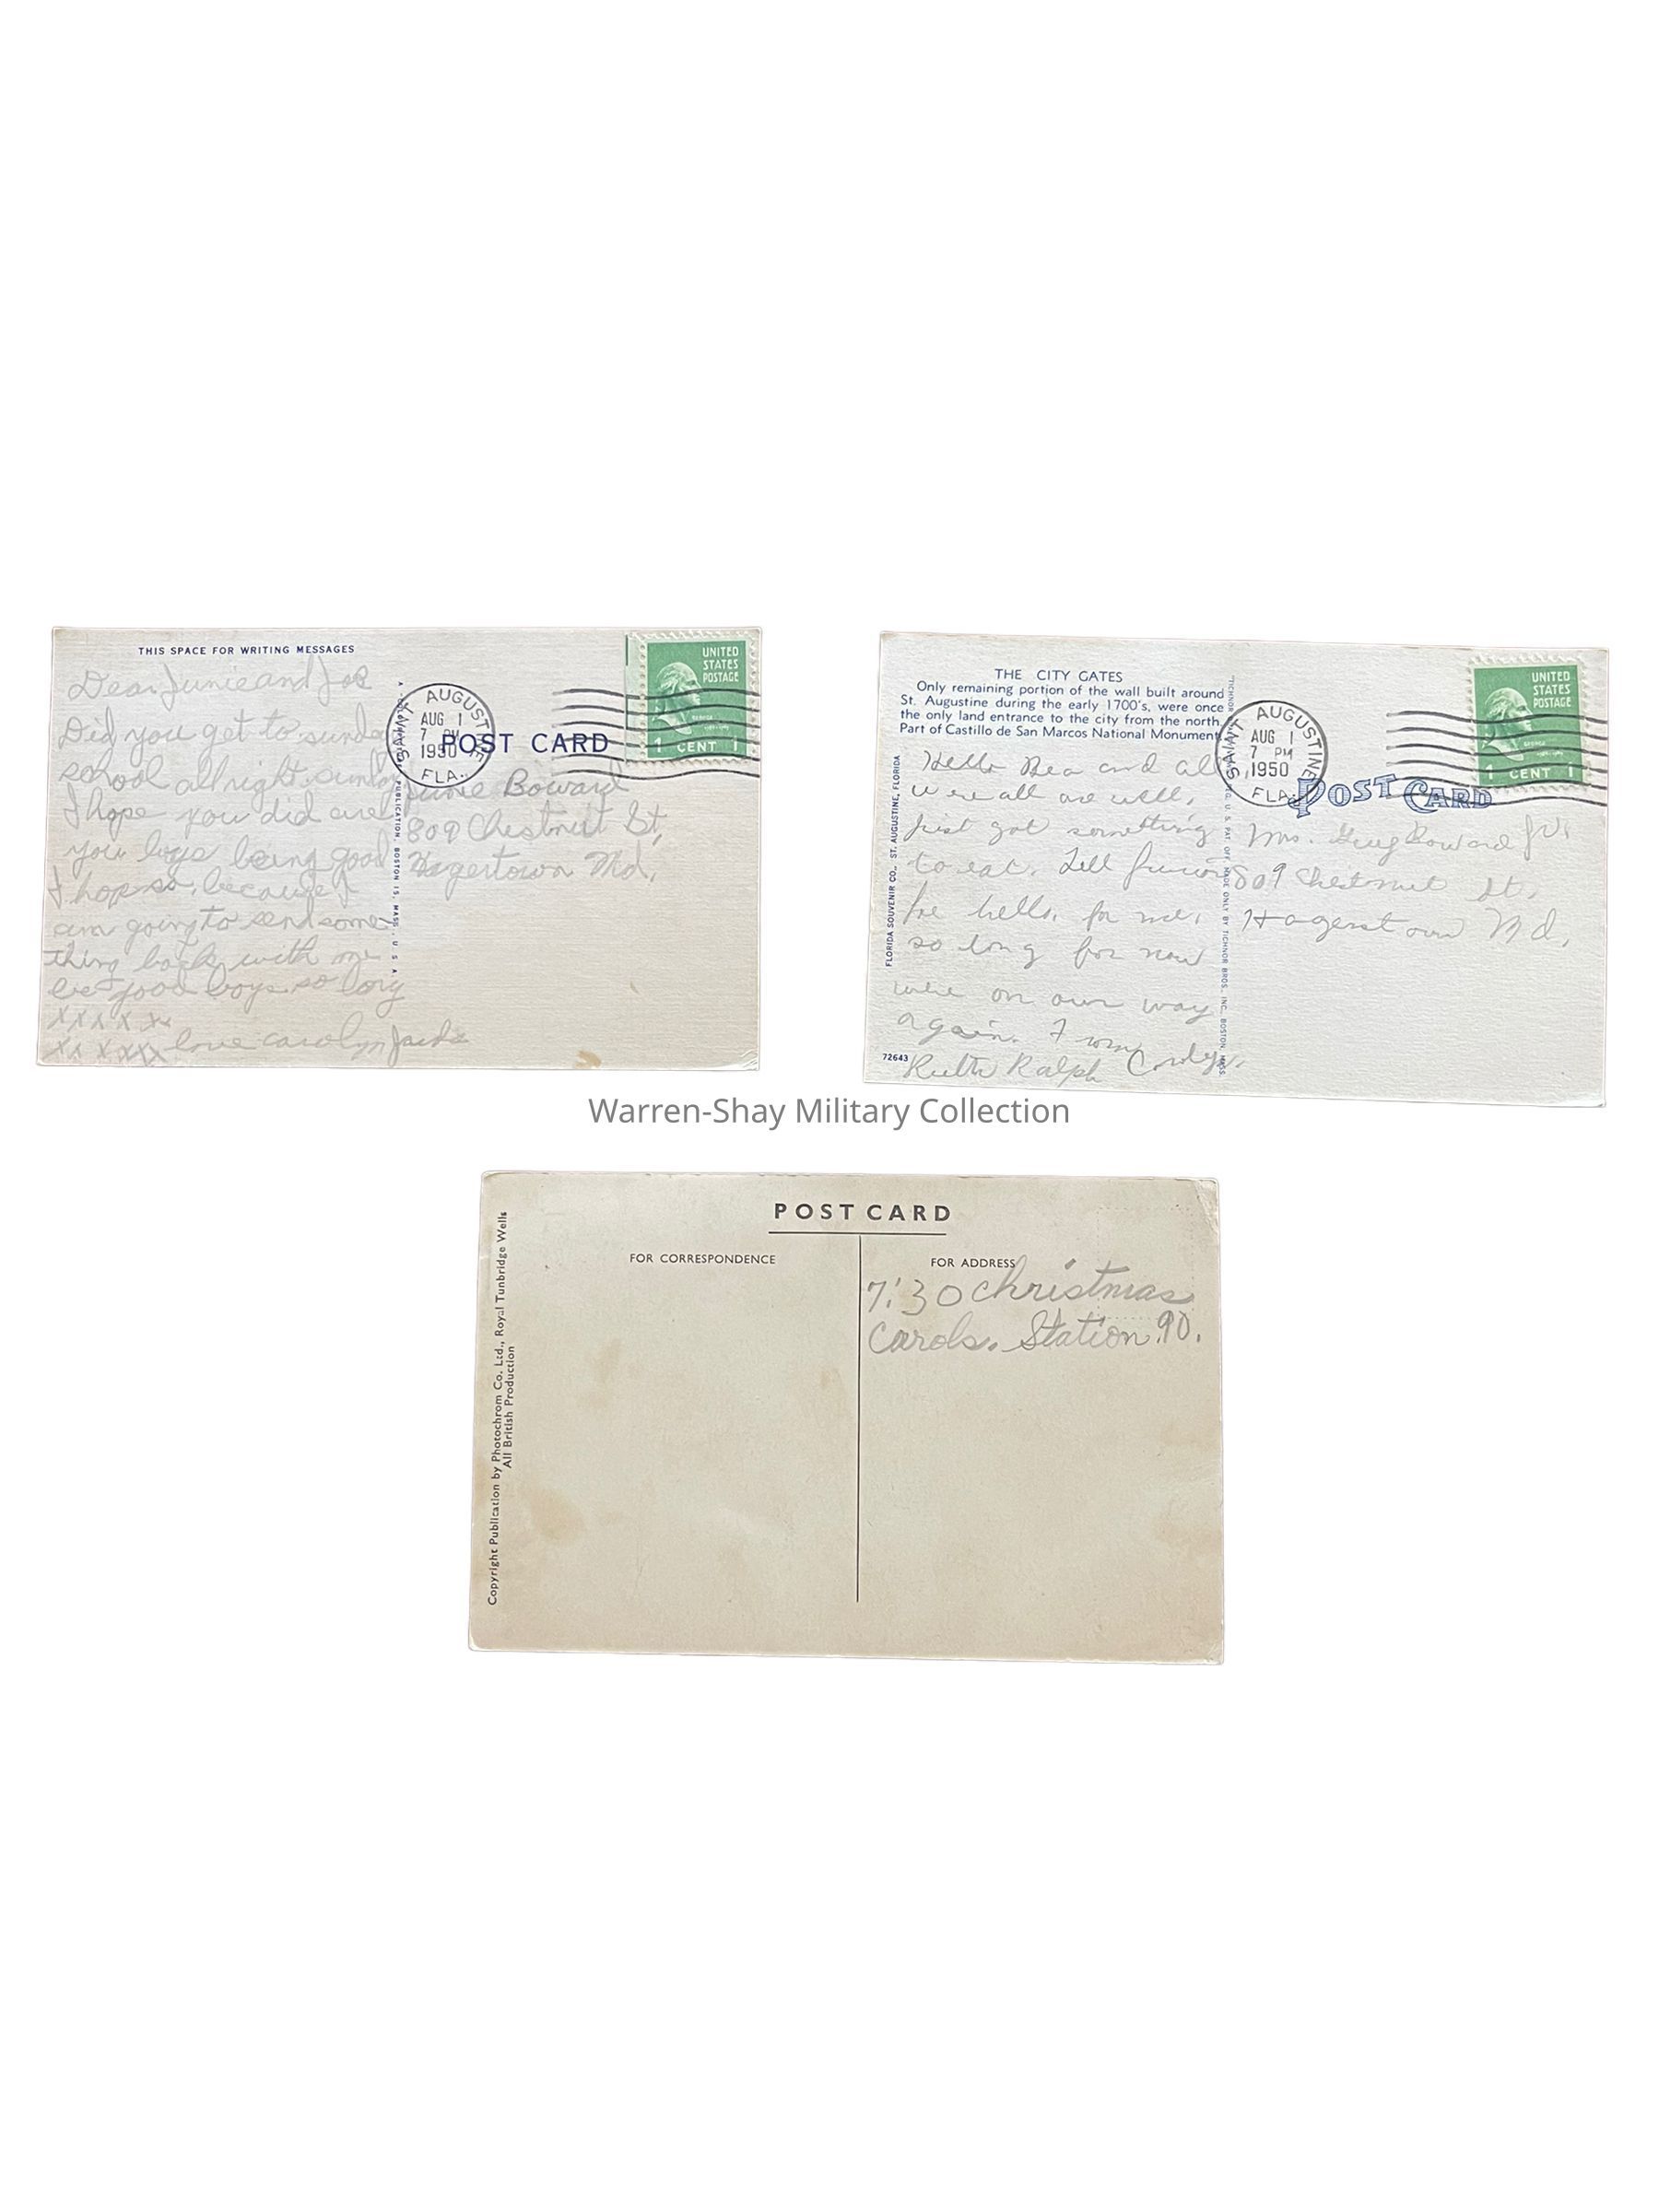 THIS SPACE FOR WRITING MESSAGES
Dear Junie and Joe
Did you get to sunday
school allright sunday
I hope you did and
you boys being good
I hop so, because I
am going to send some
thing back with me
be good boys. so long
x x x x xx
xx x xxx love carolyn
PUBLICATION, BOSTON 15, MASS., U.S.A.
SAINT AUGUSTINE
AUG 1
7 PM
1950
FLA.
POST CARD
UNITED
STATES
POSTAGE
1 CENT 1
Junie Boward
809 Chestnut St,
Hagertown Md.
THE CITY GATES
Only remaining portion of the wall built around
St. Augustine during the early 1700's, were once
the only land entrance to the city from the north.
Part of Castillo de San Marcos National Monument
Hello Bea and all
were all are well,
just got something
to eat. Tell Junior
hello, for me,
so long for now
were on our way
again. From
Ruth Ralph
72643
FLORIDA SOUVENIR CO., ST. AUGUSTINE, FLORIDA
MADE ONLY BY TICHNOR BROS., INC., BOSTON, MASS.
SAINT AUGUSTINE
AUG 1
7 PM
1950
FLA.
POST CARD
UNITED
STATES
POSTAGE
1 CENT 1
Mrs. Boward Jr.
809 Chestnut St,
Hagerstown Md,
Warren-Shay Military Collection
POST CARD
FOR CORRESPONDENCE
FOR ADDRESS
7:30 christmas
Carols. Station 90.
Copyright Publication by Photochrom Co. Ltd., Royal Tunbridge Wells
All British Production